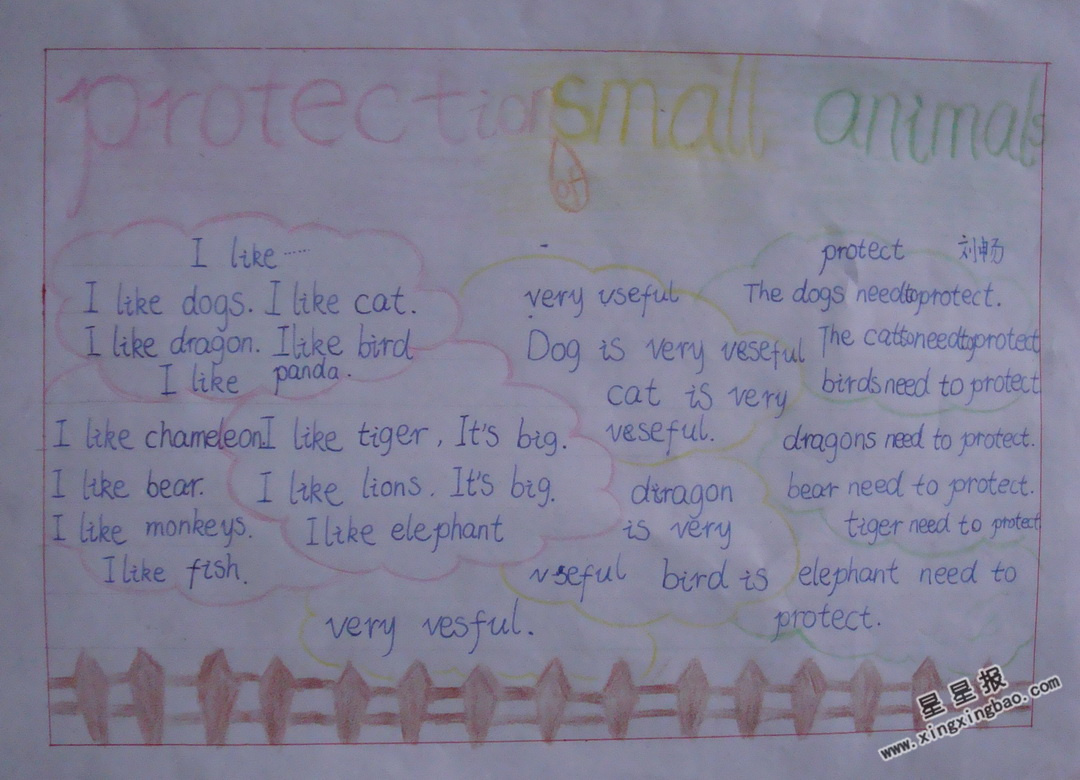 protection of small animals
I like ......
I like dogs. I like cat.
I like dragon. I like bird
I like panda.
I like chameleon.
I like bear.
I like monkeys.
I like fish.
I like tiger, It's big.
I like lions. It's big.
I like elephant
very useful
Dog is very veseful
cat is very
veseful.
diragon
is very
useful bird is
very vesful.
protect 刘畅
The dogs need to protect.
The cat to need to protect
birds need to protect
dragons need to protect.
bear need to protect.
tiger need to protect
elephant need to
protect.
星星报
www.xingxingbao.com